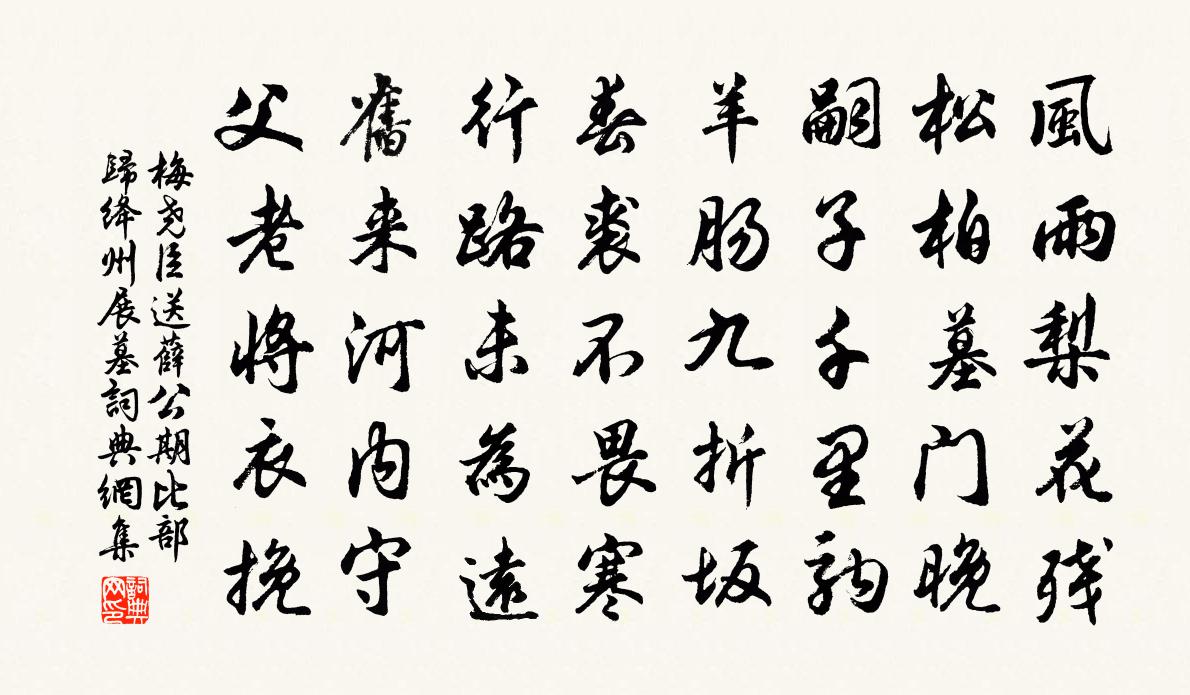 風雨梨花残
松柏墓门晚
嗣子千里駒
羊腸九折坂
春裘不畏寒
行路未為遠
舊来河内守
父老將衣挽
梅尧臣送薛公期比部
歸绛州展墓詞典網集
詞典网印